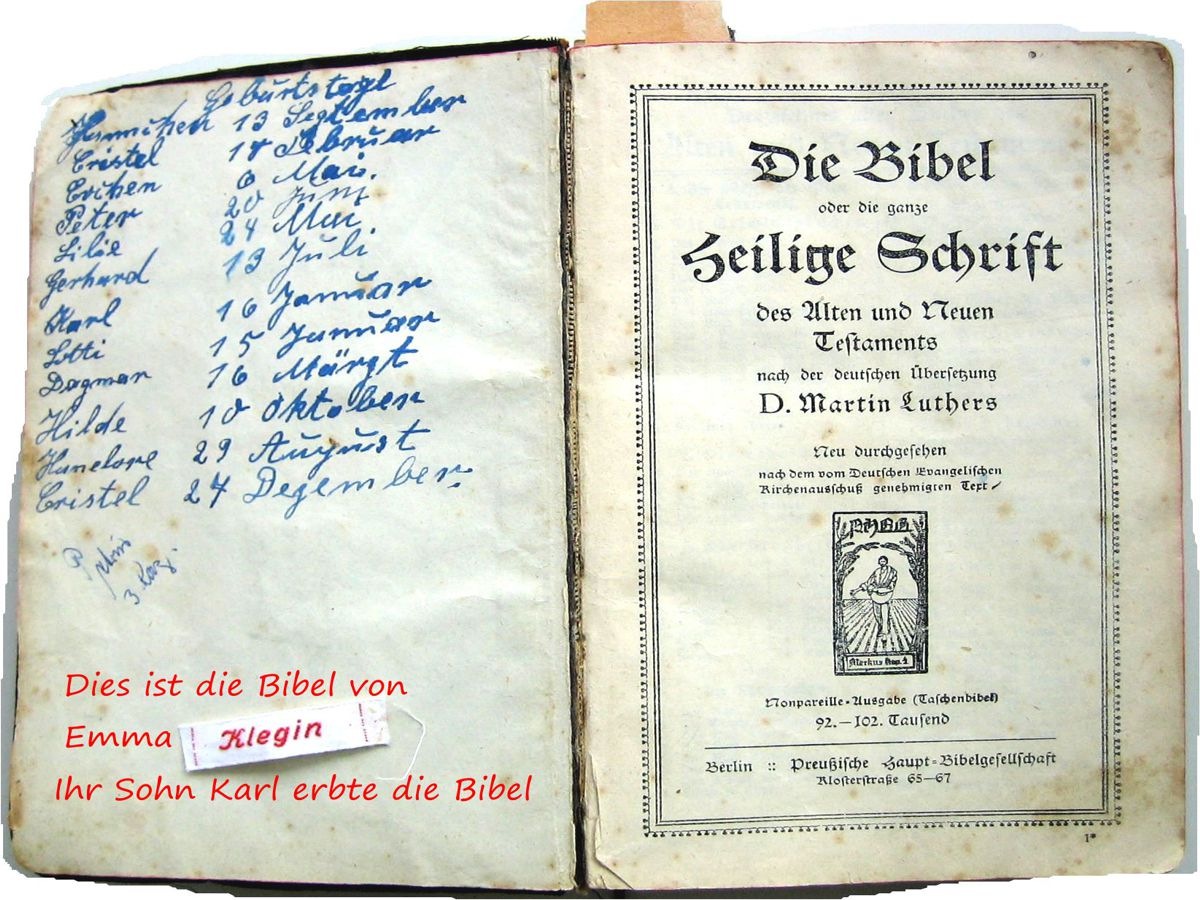 Geburtstage
Hannchen 13 September
Cristel 18 Februar
Erichen 6 Mai.
Peter 20 Juni
Lilie 24 Mai
Gerhard 13 Juli
Karl 16 Januar
Lotti 15 Januar
Dagmar 16 Märgt
Hilde 10 Oktober
Hanelore 29 August
Cristel 24 Degember
Dies ist die Bibel von
Emma Klegin
Ihr Sohn Karl erbte die Bibel
Die Bibel
oder die ganze
Heilige Schrift
des Alten und Neuen
Testaments
nach der deutschen Übersetzung
D. Martin Luthers
Neu durchgesehen
nach dem vom Deutschen Evangelischen
Kirchenausschuß genehmigten Text
PHBG
Markus Kap. 4
Nonpareille-Ausgabe (Taschenbibel)
92.—102. Tausend
Berlin :: Preußische Haupt-Bibelgesellschaft
Klosterstraße 65—67
1*